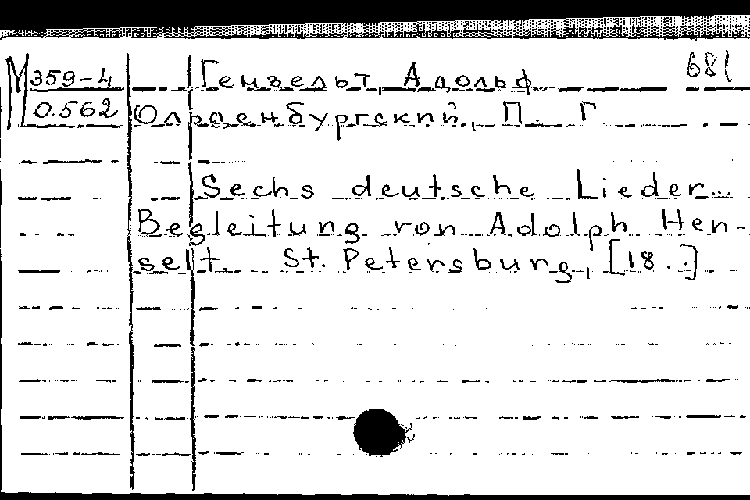 М 359-4 Гензельт, Адольф 681
0.562 Ольденбургский, П. Г
Sechs deutsche Lieder...
Begleitung von Adolph Hen-
selt. St. Petersburg, [18..]